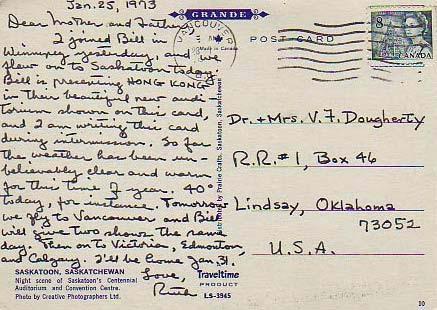 Jan. 25, 1973
Dear Mother and Father,
I joined Bill in
Winnipeg yesterday, and we
flew on to Saskatoon today.
Bill is presenting HONG KONG
in their beautiful new audi-
torium shown on this card,
and I am writing this card
during intermission. So far
the weather has been un-
believably clear and warm
for this time of year. 40°
today, for instance. Tomorrow
we fly to Vancouver and Bill
will give two shows the same
day. Then on to Victoria, Edmonton,
and Calgary. I'll be home Jan. 31.
Love,
SASKATOON, SASKATCHEWAN
Night scene of Saskatoon's Centennial
Auditorium and Convention Centre.
Photo by Creative Photographers Ltd.
Traveltime
PRODUCT
LS-3945
Distributed by Prairie Crafts, Saskatoon, Saskatchewan
GRANDE
Made in Canada
POST CARD
VANCOUVER
AM
8
CANADA
Dr. + Mrs. V. F. Dougherty
R.R. #1, Box 46
Lindsay, Oklahoma
73052
U.S.A.
10